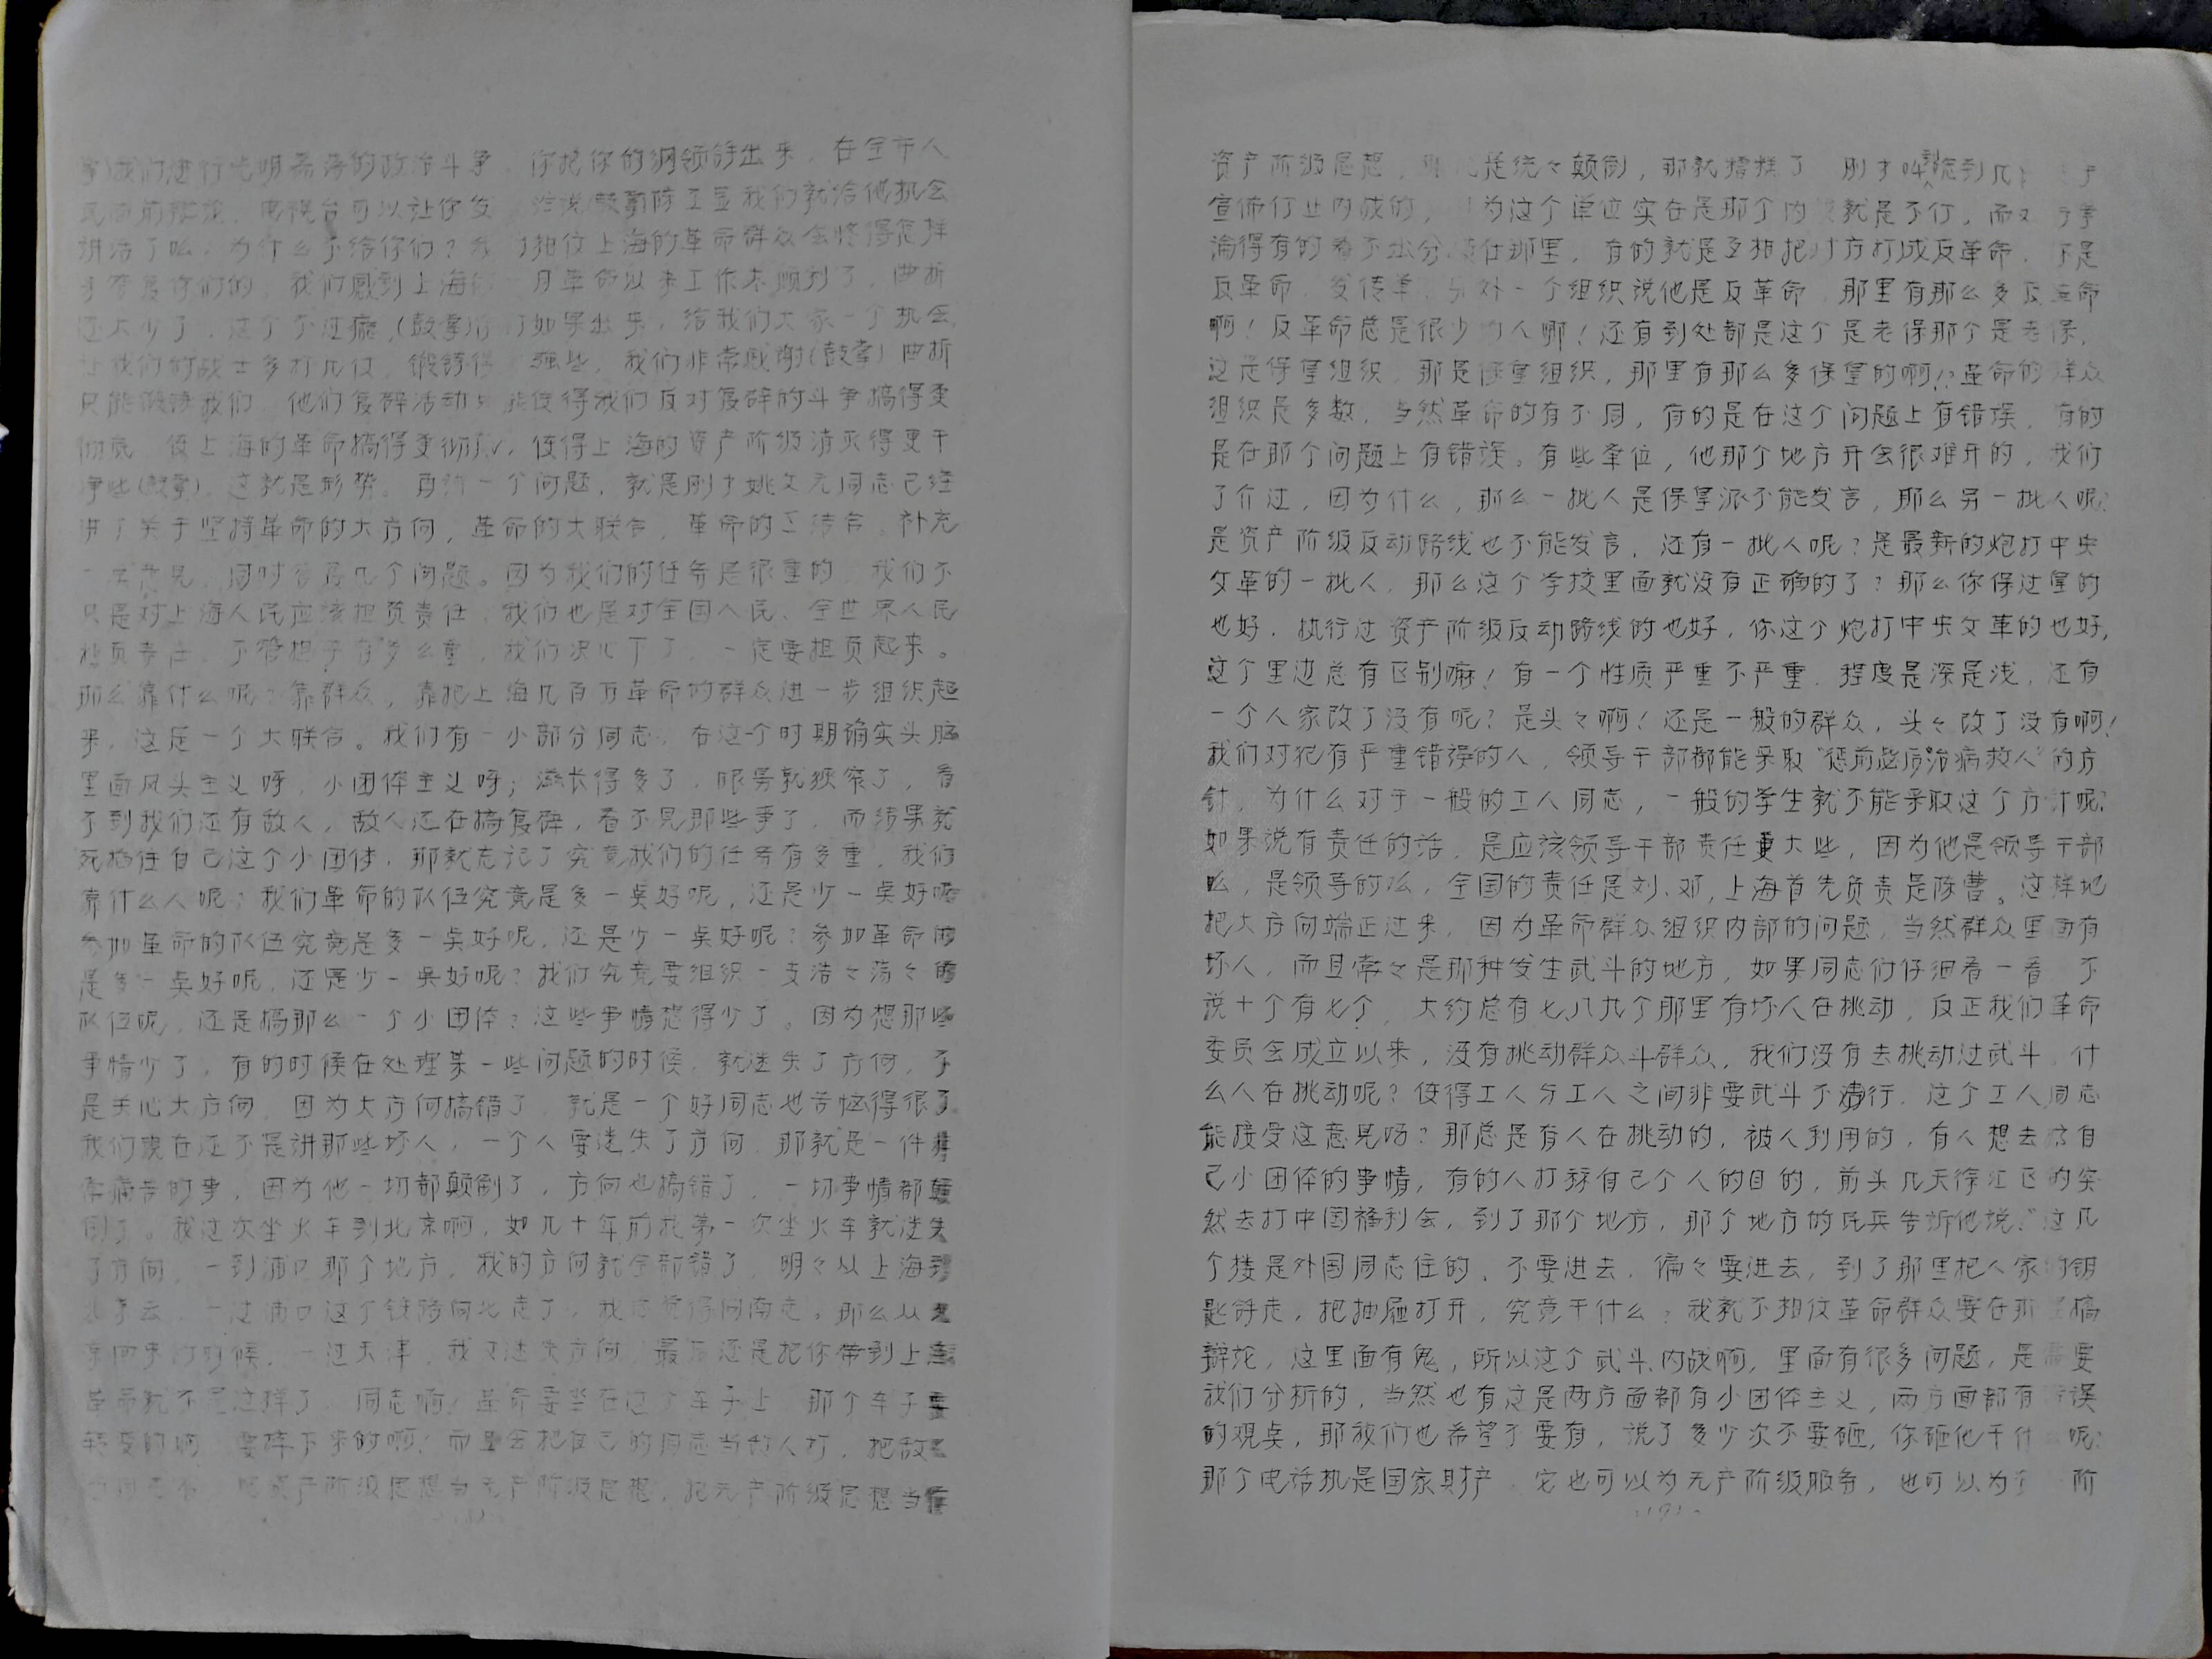 我们进行光明磊落的政治斗争，你把你的纲领拿出来，在全市人
民面前辩论，电视台可以让你发 陈丕显我们就给他机会
讲话了么，为什么不给你们？我 相信上海的革命群众会懂得怎样
你们的，我们感到上海 月革命以来工作太顺利了，曲折
还太少了，这个不过瘾，(鼓掌)你们如果出来，给我们大家一个机会，
让我们的战士多打几仗，锻炼得 强些，我们非常感谢(鼓掌)曲折
只能锻炼我们，他们复辟活动只能使得我们反对复辟的斗争搞得更
彻底，使上海的革命搞得更彻底，使得上海的资产阶级消灭得更干
净些(鼓掌)，这就是形势。再讲一个问题，就是刚才姚文元同志已经
讲了关于坚持革命的大方向，革命的大联合，革命的三结合。补充
一点意见，同时答复几个问题。因为我们的任务是很重的，我们不
只是对上海人民应该担负责任，我们也是对全国人民、全世界人民
担负责任，不管担子有多么重，我们决心下了，一定要担负起来。
那么靠什么呢？靠群众，靠把上海几百万革命的群众进一步组织起
来，这是一个大联合。我们有一小部分同志，在这个时期确实头脑
里面风头主义呀，小团体主义呀；滋长得多了，眼界就狭窄了，看
不到我们还有敌人，敌人还在搞复辟，看不见那些事了，而结果就
死抱住自己这个小团体，那就忘记了究竟我们的任务有多重，我们
靠什么人呢？我们革命的队伍究竟是多一奌好呢，还是少一奌好呢
参加革命的队伍究竟是多一奌好呢，还是少一奌好呢？参加革命的
是多一奌好呢，还是少一奌好呢？我们究竟要组织一支浩々荡々的
队伍呢，还是搞那么一个小团体？这些事情想得少了。因为想那些
事情少了，有的时候在处理某一些问题的时候，就迷失了方向，不
是关心大方向，因为大方向搞错了，就是一个好同志也苦恼得很了。
我们现在还不是讲那些坏人，一个人要迷失了方向，那就是一件非
常痛苦的事，因为他一切都颠倒了，方向也搞错了，一切事情都颠
倒了。我这次坐火车到北京啊，如几十年前我第一次坐火车就迷失
了方向，一到浦口那个地方，我的方向就全部错了，明々从上海到
北京去，一过浦口这个铁路向北走了，我总觉得向南走。那么从北
京回来的时候，一过天津，我又迷失方向，最后还是把你带到上海
革命就不是这样了，同志啊！革命要坐在这个车子上，那个车子要
转变的啊，要摔下来的啊！而且会把自己的同志当敌人打，把敌人
把资产阶级思想当无产阶级思想，把无产阶级思想当作
资产阶级思想， 是统々颠倒，那就糟糕了，刚才叫我听到几
宣佈行业内战的， 为这个单位实在是那个内 就是不行，而又 争
论得有的看不出分歧在那里，有的就是互相把对方打成反革命，不是
反革命，发传单，另外一个组织说他是反革命，那里有那么多反革命
啊！反革命总是很少的人啊！还有到处都是这个是老保那个是老保，
这是保皇组织，那是保皇组织，那里有那么多保皇的啊！？革命的群众
组织是多数，当然革命的有不同，有的是在这个问题上有错误，有的
是在那个问题上有错误。有些单位，他那个地方开会很难开的，我们
了介过，因为什么，那么一批人是保皇派不能发言，那么另一批人呢？
是资产阶级反动路线也不能发言，还有一批人呢？是最新的炮打中央
文革的一批人，那么这个学校里面就没有正确的了？那么你保过皇的
也好，执行过资产阶级反动路线的也好，你这个炮打中央文革的也好，
这个里边总有区别嘛！有一个性质严重不严重，程度是深是浅，还有
一个人家改了没有呢？是头々啊！还是一般的群众，头々改了没有啊！
我们对犯有严重错误的人，领导干部都能采取“惩前毖后治病救人”的方
针，为什么对于一般的工人同志，一般的学生就不能采取这个方针呢？
如果说有责任的话，是应该领导干部责任重大些，因为他是领导干部
么，是领导的么，全国的责任是刘、邓，上海首先负责是陈曹。这样地
把大方向端正过来，因为革命群众组织内部的问题，当然群众里面有
坏人，而且常々是那种发生武斗的地方，如果同志们仔细看一看，不
说十个有七个，大约总有七八九个那里有坏人在挑动，反正我们革命
委员会成立以来，没有挑动群众斗群众，我们没有去挑动过武斗，什
么人在挑动呢？使得工人与工人之间非要武斗不行，这个工人同志
能接受这意见吗？那总是有人在挑动的，被人利用的，有人想去搞自
己小团体的事情，有的人打算自己个人的目的，前头几天徐汇区的突
然去打中国福利会，到了那个地方，那个地方的民兵告诉他说，“这几
个楼是外国同志住的，不要进去，偏々要进去，到了那里把人家的钥
匙拿走，把抽屉打开，究竟干什么？我就不相仗革命群众要在那里搞
辩论，这里面有鬼，所以这个武斗、内战啊，里面有很多问题，是需要
我们分析的，当然也有这是两方面都有小团体主义，两方面都有错误
的观奌，那我们也希望不要有，说了多少次不要砸，你砸他干什么呢？
那个电话机是国家财产，它也可以为无产阶级服务，也可以为资 阶
-19-